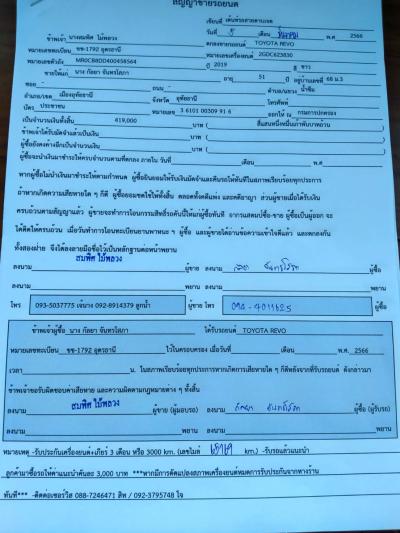 สัญญาขายรถยนต์
เขียนที่ เต็นท์รถสวยตาบเจต
วันที่ 8 เดือน พ.ศ. 2566
ข้าพเจ้า นางสมพิศ ไม้พลวง ตกลงขายรถยนต์ TOYOTA REVO
หมายเลขทะเบียน ขช-1792 อุดรธานี หมายเลขเครื่องยนต์ 2GDC623830
หมายเลขตัวถัง MR0CB8DD400458564 ปี 2019 สี ขาว
ขายให้แก่ นาง กัลยา จันทรโสภา อายุ 51 ปี อยู่บ้านเลขที่ 68 ม.3
ซอย - ถนน - ตำบล/แขวง น้ำซึม
อำเภอ/เขต เมืองอุทัยธานี จังหวัด อุทัยธานี โทรศัพท์
บัตร ประชาชน หมายเลข 3 6101 00309 91 6 ออกให้ ณ กรมการปกครอง
เป็นจำนวนเงินทั้งสิ้น 419,000 บาท ( สี่แสนหนึ่งหมื่นเก้าพันบาทถ้วน )
ข้าพเจ้าได้รับมัดจำแล้วเป็นเงิน บาท ( )
ผู้ซื้อยังคงค้างอีกเป็นจำนวนเงิน บาท ( )
ผู้ซื้อจะนำเงินมาชำระให้ครบจำนวนตามที่ตกลง ภายใน วันที่ เดือน พ.ศ.
หากผู้ซื้อไม่นำเงินมาชำระให้ตามกำหนด ผู้ซื้อยินยอมให้ริบเงินมัดจำและคืนรถให้ทันทีในสภาพเรียบร้อยทุกประการ
ถ้าหากเกิดความเสียหายใด ๆ ก็ดี ผู้ซื้อยอมชดใช้ให้ทั้งสิ้น ตลอดทั้งคดีแพ่ง และคดีอาญา ส่วนผู้ขายเมื่อได้รับเงิน
ครบถ้วนตามสัญญาแล้ว ผู้ขายจะทำการโอนกรรมสิทธิ์รถคันนี้ให้แก่ผู้ซื้อทันที อากรแสตมป์ซื้อ-ขาย ผู้ซื้อเป็นผู้ออก จะ
ได้คิดให้ครบถ้วน เมื่อวันทำการโอนทะเบียนยานพาหนะ ฯ ผู้ซื้อ และผู้ขายได้อ่านข้อความเข้าใจดีแล้ว และตกลงกัน
ทั้งสองฝ่าย จึงได้ลงลายมือชื่อไว้เป็นหลักฐานต่อหน้าพยาน
ลงนาม สมพิศ ไม้พลวง ผู้ขาย ลงนาม กัลยา จันทรโสภา ผู้ซื้อ
ลงนาม พยาน ลงนาม พยาน
โทร 093-5037775 เจ้นาง 092-8914379 ลูกน้ำ ผู้ขาย โทร 094-4011625 ผู้ซื้อ
ข้าพเจ้าผู้ซื้อ นาง กัลยา จันทรโสภา ได้รับรถยนต์ TOYOTA REVO
หมายเลขทะเบียน ขช-1792 อุดรธานี ไว้ในครอบครอง เมื่อวันที่ เดือน พ.ศ. 2566
เวลา น. ในสภาพเรียบร้อยทุกประการหากเกิดการเสียหายใด ๆ ก็ดีหลังจากที่รับรถยนต์ ดังกล่าวมา
ข้าพเจ้าขอรับผิดชอบค่าเสียหาย และความผิดตามกฎหมายต่าง ๆ ทั้งสิ้น
ลงนาม สมพิศ ไม้พลวง ผู้ขาย (ผู้มอบรถ) ลงนาม กัลยา จันทรโสภา ผู้ซื้อ (ผู้รับรถ)
ลงนาม พยาน ลงนาม พยาน
หมายเหตุ -รับประกันเครื่องยนต์+เกียร์ 3 เดือน หรือ 3000 km. (เลขไมล์ km.) -รับรถแล้วแนะนำ
ลูกค้ามาซื้อรถให้ค่าแนะนำคันละ 3,000 บาท ***หากมีการดัดแปลงสภาพเครื่องยนต์หมดการรับประกันจากทางร้าน
ทันที*** -ติดต่อเซอร์วิส 088-7246471 สิท / 092-3795748 ใจ